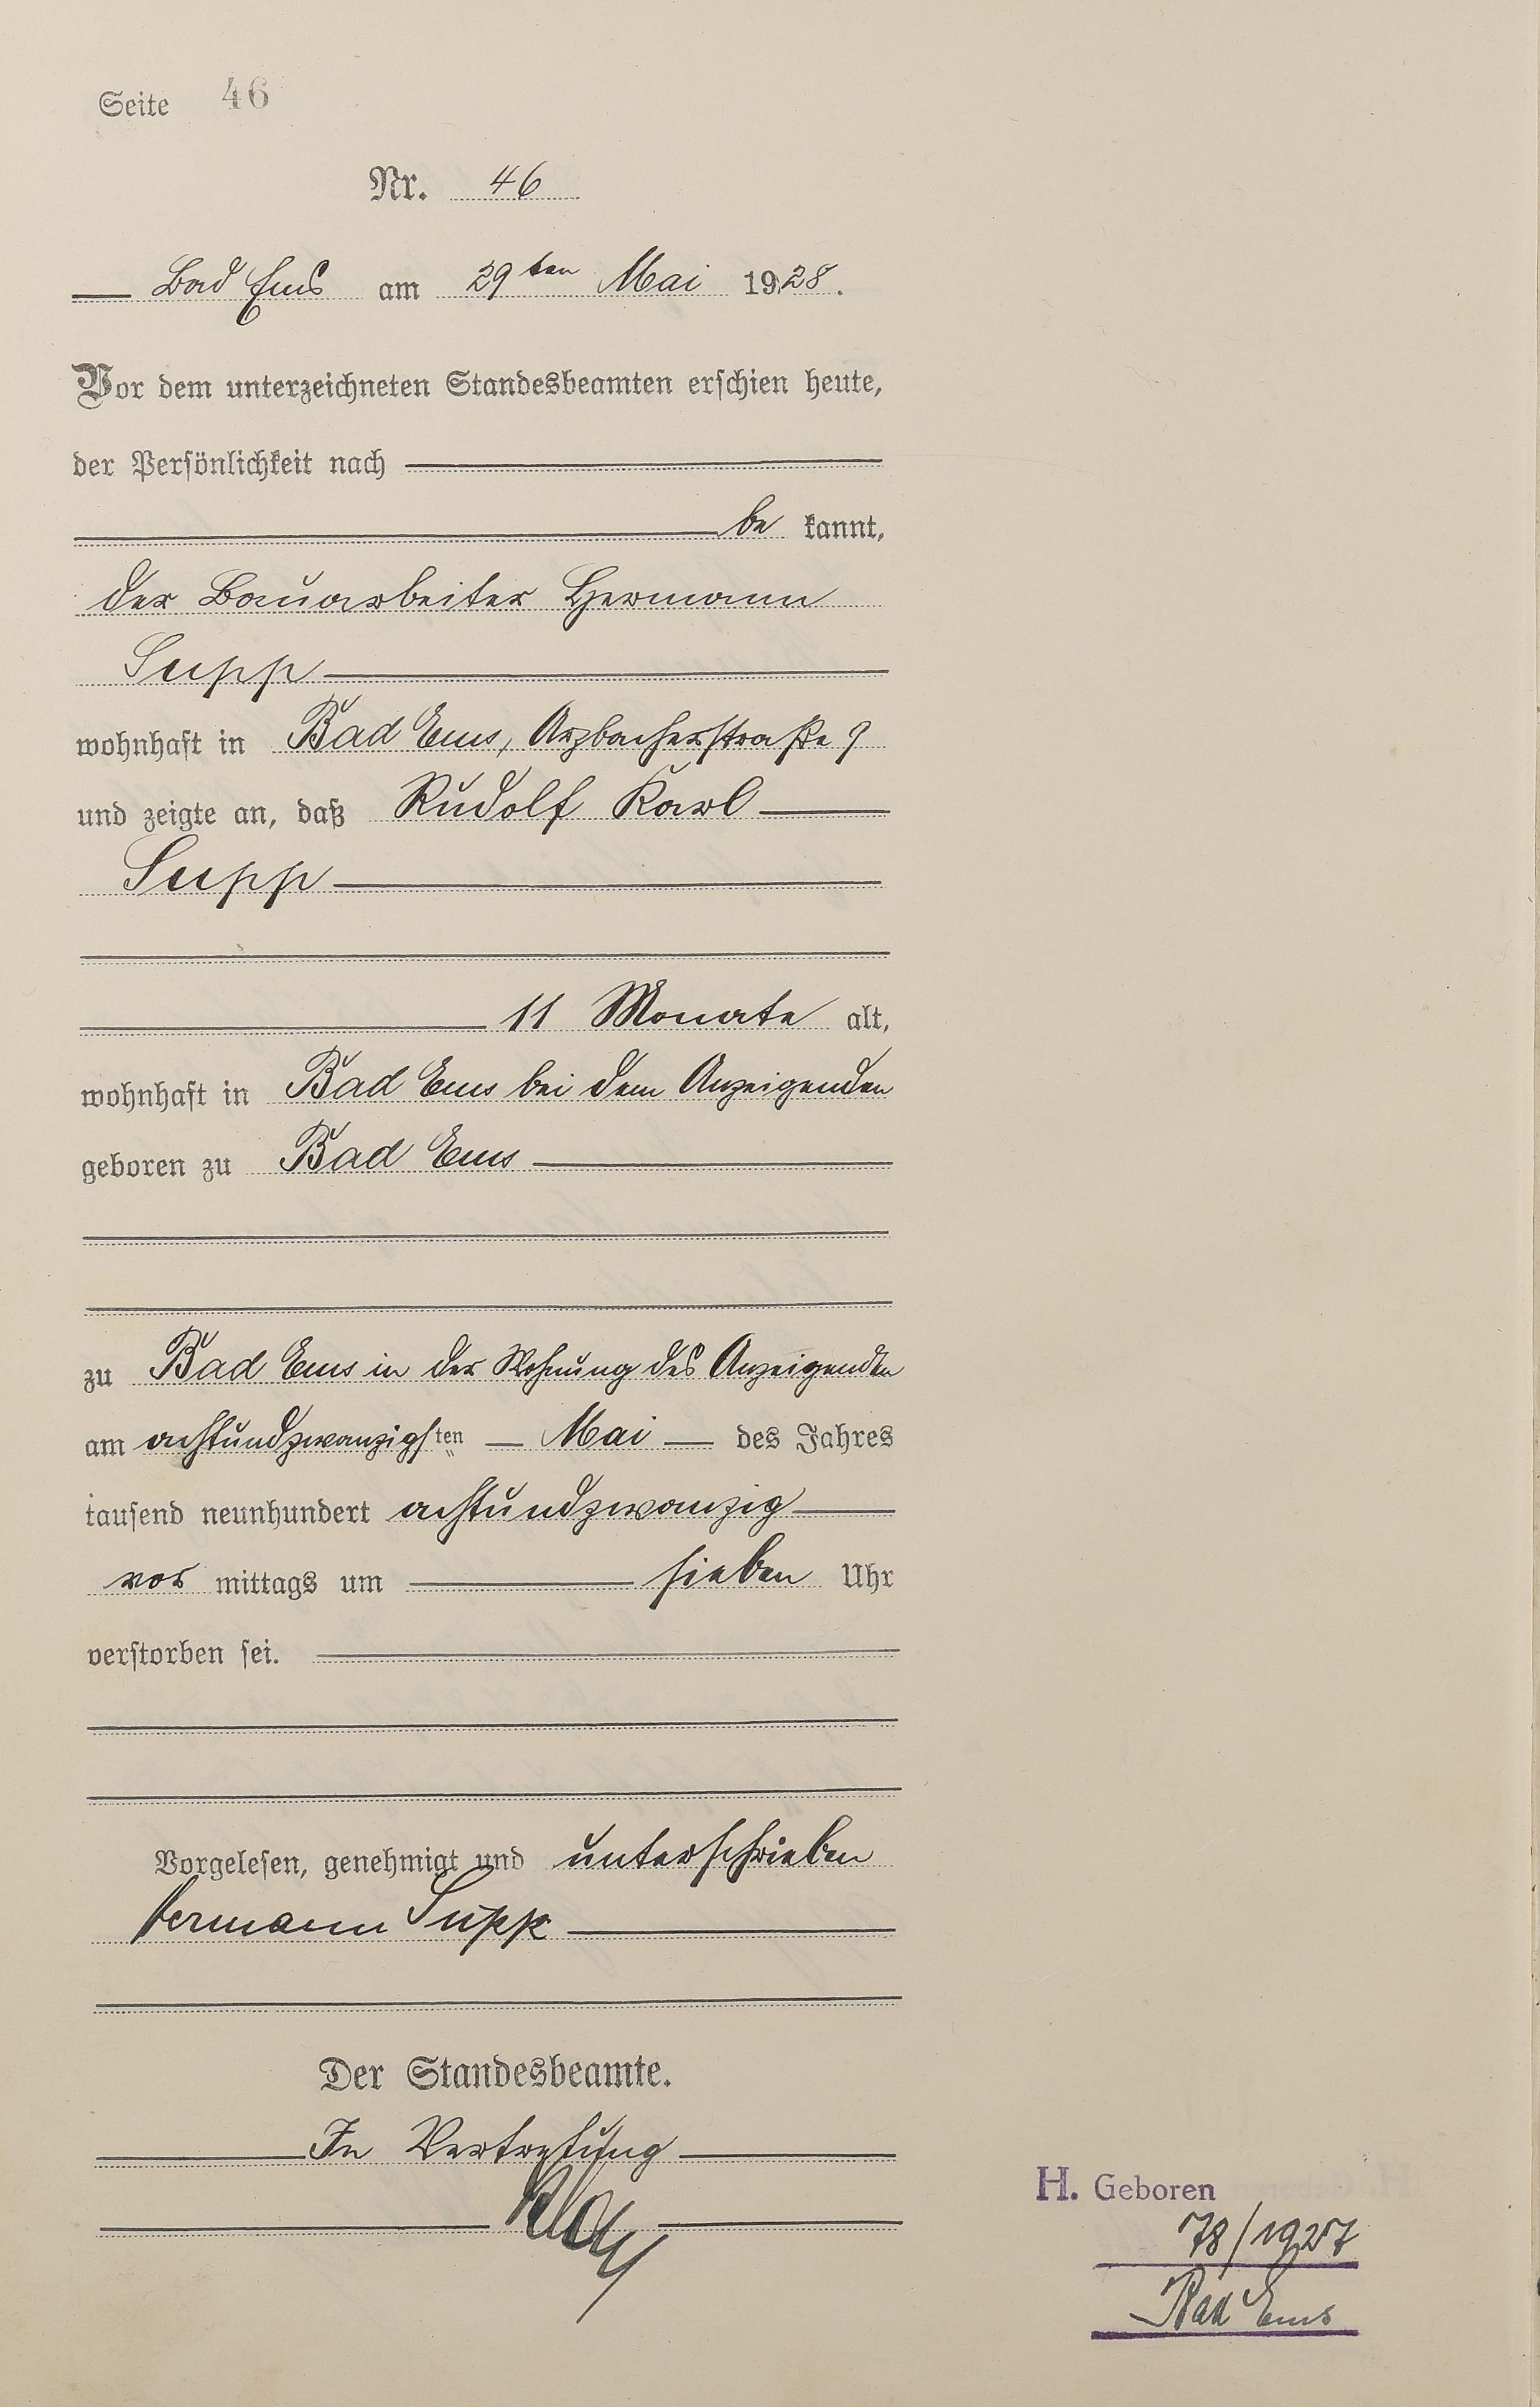 Seite 46
Nr. 46
Bad Ems am 29ten Mai 1928.
Vor dem unterzeichneten Standesbeamten erschien heute,
der Persönlichkeit nach
be kannt,
der Bauarbeiter Hermann
Supp
wohnhaft in Bad Ems, Arzbacherstraße 9
und zeigte an, daß Rudolf Karl
Supp
11 Monate alt,
wohnhaft in Bad Ems bei dem Anzeigenden
geboren zu Bad Ems
zu Bad Ems in der Wohnung des Anzeigenden
am achtundzwanzigsten Mai des Jahres
tausend neunhundert achtundzwanzig
vor mittags um sieben Uhr
verstorben sei.
Vorgelesen, genehmigt und unterschrieben
Hermann Supp
Der Standesbeamte.
In Vertretung
H. Geboren
78/1927
Bad Ems